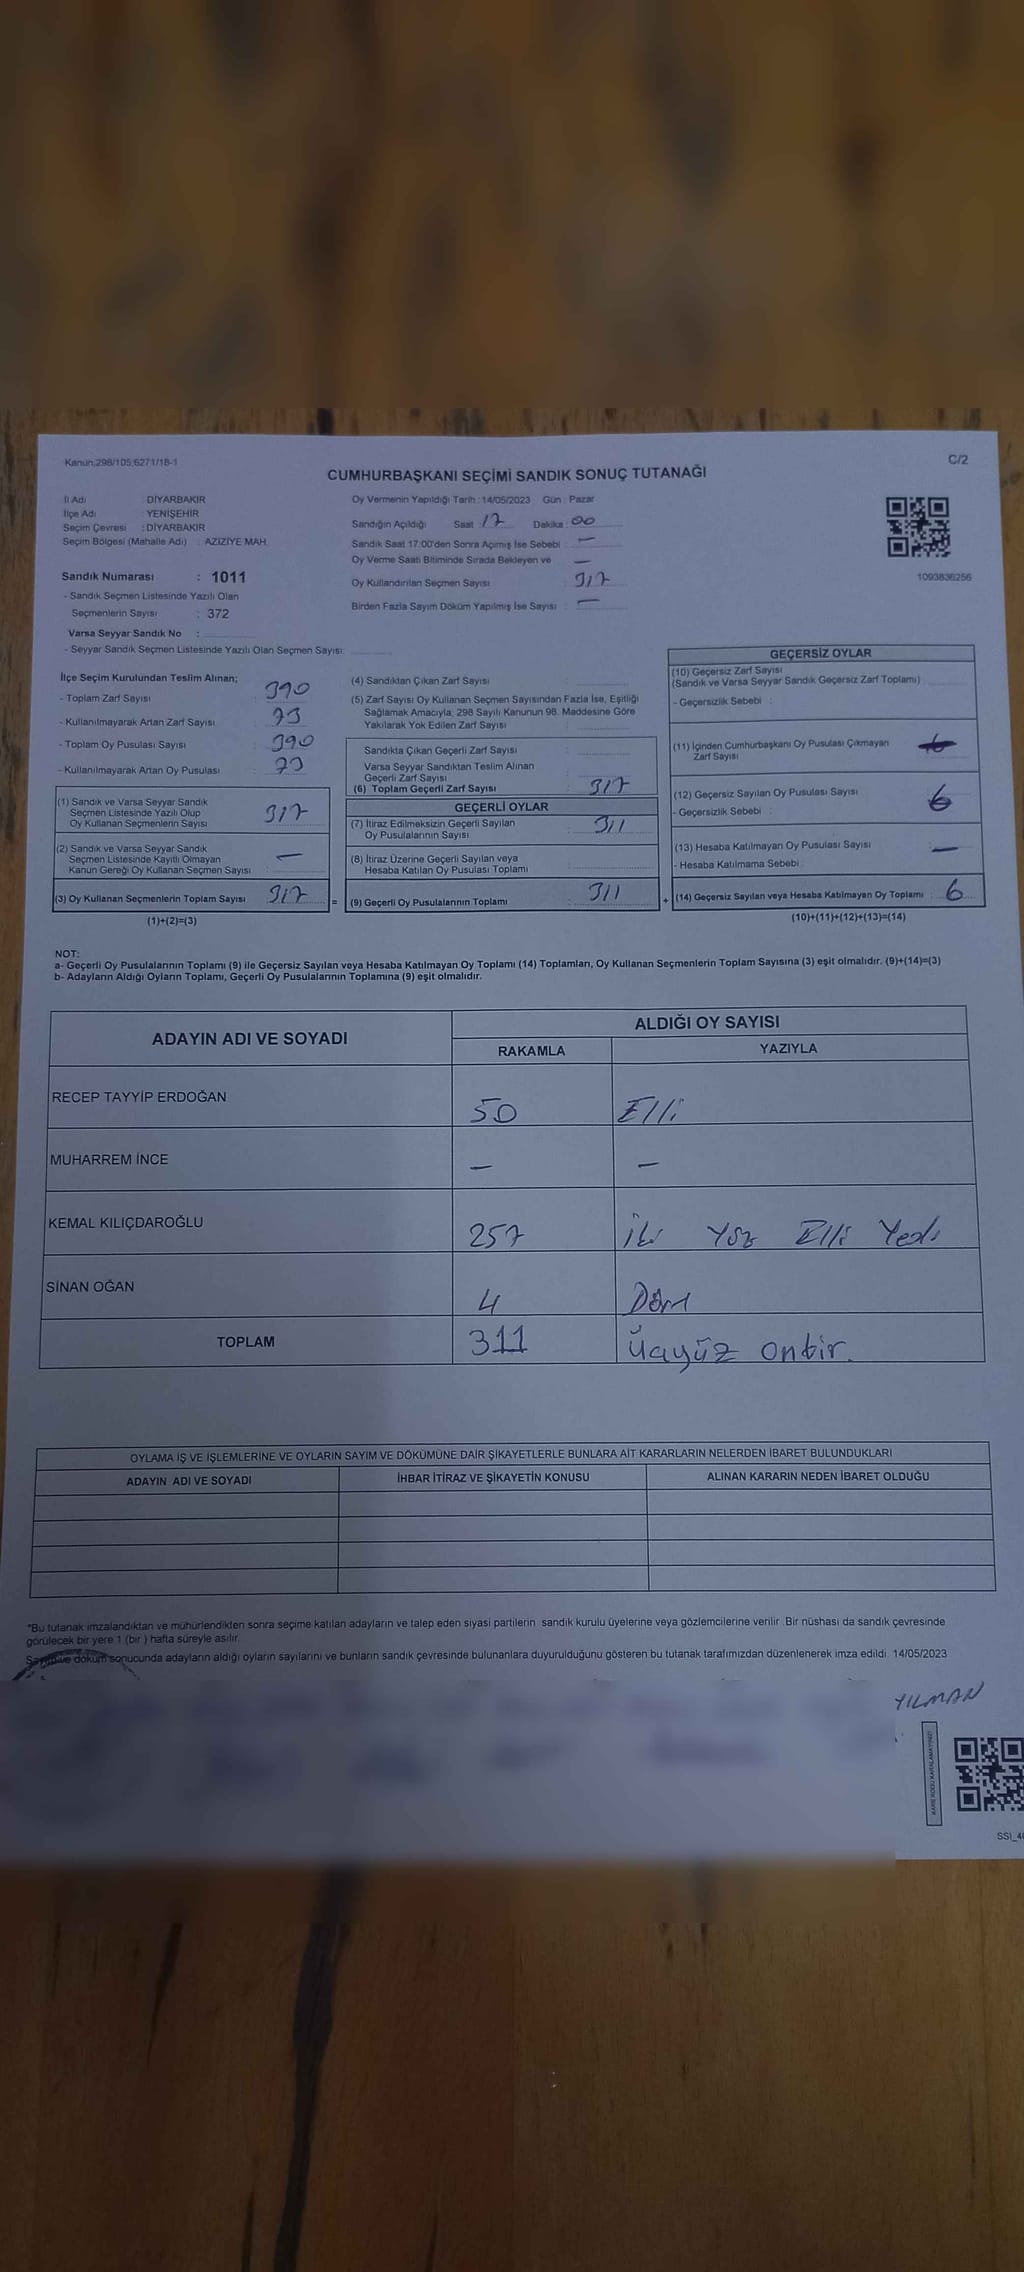 Kanun;298/105;6271/18-1
C/2
CUMHURBAŞKANI SEÇİMİ SANDIK SONUÇ TUTANAĞI
İl Adı : DİYARBAKIR
İlçe Adı : YENİŞEHİR
Seçim Çevresi : DİYARBAKIR
Seçim Bölgesi (Mahalle Adı) : AZİZİYE MAH.
Sandık Numarası : 1011
- Sandık Seçmen Listesinde Yazılı Olan
Seçmenlerin Sayısı : 372
Varsa Seyyar Sandık No :
- Seyyar Sandık Seçmen Listesinde Yazılı Olan Seçmen Sayısı:
Oy Vermenin Yapıldığı Tarih : 14/05/2023 Gün : Pazar
Sandığın Açıldığı Saat : 17 Dakika : 00
Sandık Saat 17:00'den Sonra Açılmış İse Sebebi : —
Oy Verme Saati Bitiminde Sırada Bekleyen ve —
Oy Kullandırılan Seçmen Sayısı : 317
Birden Fazla Sayım Döküm Yapılmış İse Sayısı : —
1093836256
İlçe Seçim Kurulundan Teslim Alınan;
- Toplam Zarf Sayısı : 390
- Kullanılmayarak Artan Zarf Sayısı : 73
- Toplam Oy Pusulası Sayısı : 390
- Kullanılmayarak Artan Oy Pusulası : 73
(1) Sandık ve Varsa Seyyar Sandık
Seçmen Listesinde Yazılı Olup
Oy Kullanan Seçmenlerin Sayısı : 317
(2) Sandık ve Varsa Seyyar Sandık
Seçmen Listesinde Kayıtlı Olmayan
Kanun Gereği Oy Kullanan Seçmen Sayısı : —
(3) Oy Kullanan Seçmenlerin Toplam Sayısı : 317
(1)+(2)=(3)
=
(4) Sandıktan Çıkan Zarf Sayısı :
(5) Zarf Sayısı Oy Kullanan Seçmen Sayısından Fazla İse, Eşitliği
Sağlamak Amacıyla; 298 Sayılı Kanunun 98. Maddesine Göre
Yakılarak Yok Edilen Zarf Sayısı :
Sandıkta Çıkan Geçerli Zarf Sayısı :
Varsa Seyyar Sandıktan Teslim Alınan
Geçerli Zarf Sayısı :
(6) Toplam Geçerli Zarf Sayısı : 317
GEÇERLİ OYLAR
(7) İtiraz Edilmeksizin Geçerli Sayılan
Oy Pusulalarının Sayısı : 311
(8) İtiraz Üzerine Geçerli Sayılan veya
Hesaba Katılan Oy Pusulası Toplamı :
(9) Geçerli Oy Pusulalarının Toplamı : 311
+
GEÇERSİZ OYLAR
(10) Geçersiz Zarf Sayısı
(Sandık ve Varsa Seyyar Sandık Geçersiz Zarf Toplamı) :
- Geçersizlik Sebebi :
(11) İçinden Cumhurbaşkanı Oy Pusulası Çıkmayan
Zarf Sayısı
(12) Geçersiz Sayılan Oy Pusulası Sayısı : 6
- Geçersizlik Sebebi :
(13) Hesaba Katılmayan Oy Pusulası Sayısı : —
- Hesaba Katılmama Sebebi :
(14) Geçersiz Sayılan veya Hesaba Katılmayan Oy Toplamı : 6
(10)+(11)+(12)+(13)=(14)
NOT:
a- Geçerli Oy Pusulalarının Toplamı (9) ile Geçersiz Sayılan veya Hesaba Katılmayan Oy Toplamı (14) Toplamları, Oy Kullanan Seçmenlerin Toplam Sayısına (3) eşit olmalıdır. (9)+(14)=(3)
b- Adayların Aldığı Oyların Toplamı, Geçerli Oy Pusulalarının Toplamına (9) eşit olmalıdır.
ADAYIN ADI VE SOYADI ALDIĞI OY SAYISI
RAKAMLA YAZIYLA
RECEP TAYYİP ERDOĞAN 50 Elli
MUHARREM İNCE — —
KEMAL KILIÇDAROĞLU 257 İki Yüz Elli Yedi
SİNAN OĞAN 4 Dört
TOPLAM 311 Üçyüz onbir.
OYLAMA İŞ VE İŞLEMLERİNE VE OYLARIN SAYIM VE DÖKÜMÜNE DAİR ŞİKAYETLERLE BUNLARA AİT KARARLARIN NELERDEN İBARET BULUNDUKLARI
ADAYIN ADI VE SOYADI İHBAR İTİRAZ VE ŞİKAYETİN KONUSU ALINAN KARARIN NEDEN İBARET OLDUĞU
*Bu tutanak imzalandıktan ve mühürlendikten sonra seçime katılan adayların ve talep eden siyasi partilerin sandık kurulu üyelerine veya gözlemcilerine verilir. Bir nüshası da sandık çevresinde
görülecek bir yere 1 (bir) hafta süreyle asılır.
Sayım ve döküm sonucunda adayların aldığı oyların sayılarını ve bunların sandık çevresinde bulunanlara duyurulduğunu gösteren bu tutanak tarafımızdan düzenlenerek imza edildi. 14/05/2023
YILMAN